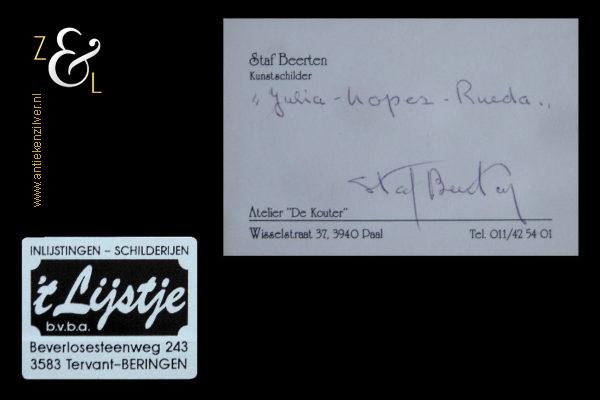 Z & L
www.antiekenzilver.nl
Staf Beerten
Kunstschilder
"Julia - Lopez - Rueda."
Staf Beerten
Atelier "De Kouter"
Wisselstraat 37, 3940 Paal Tel. 011/42 54 01
INLIJSTINGEN – SCHILDERIJEN
't Lijstje
b.v.b.a.
Beverlosesteenweg 243
3583 Tervant-BERINGEN